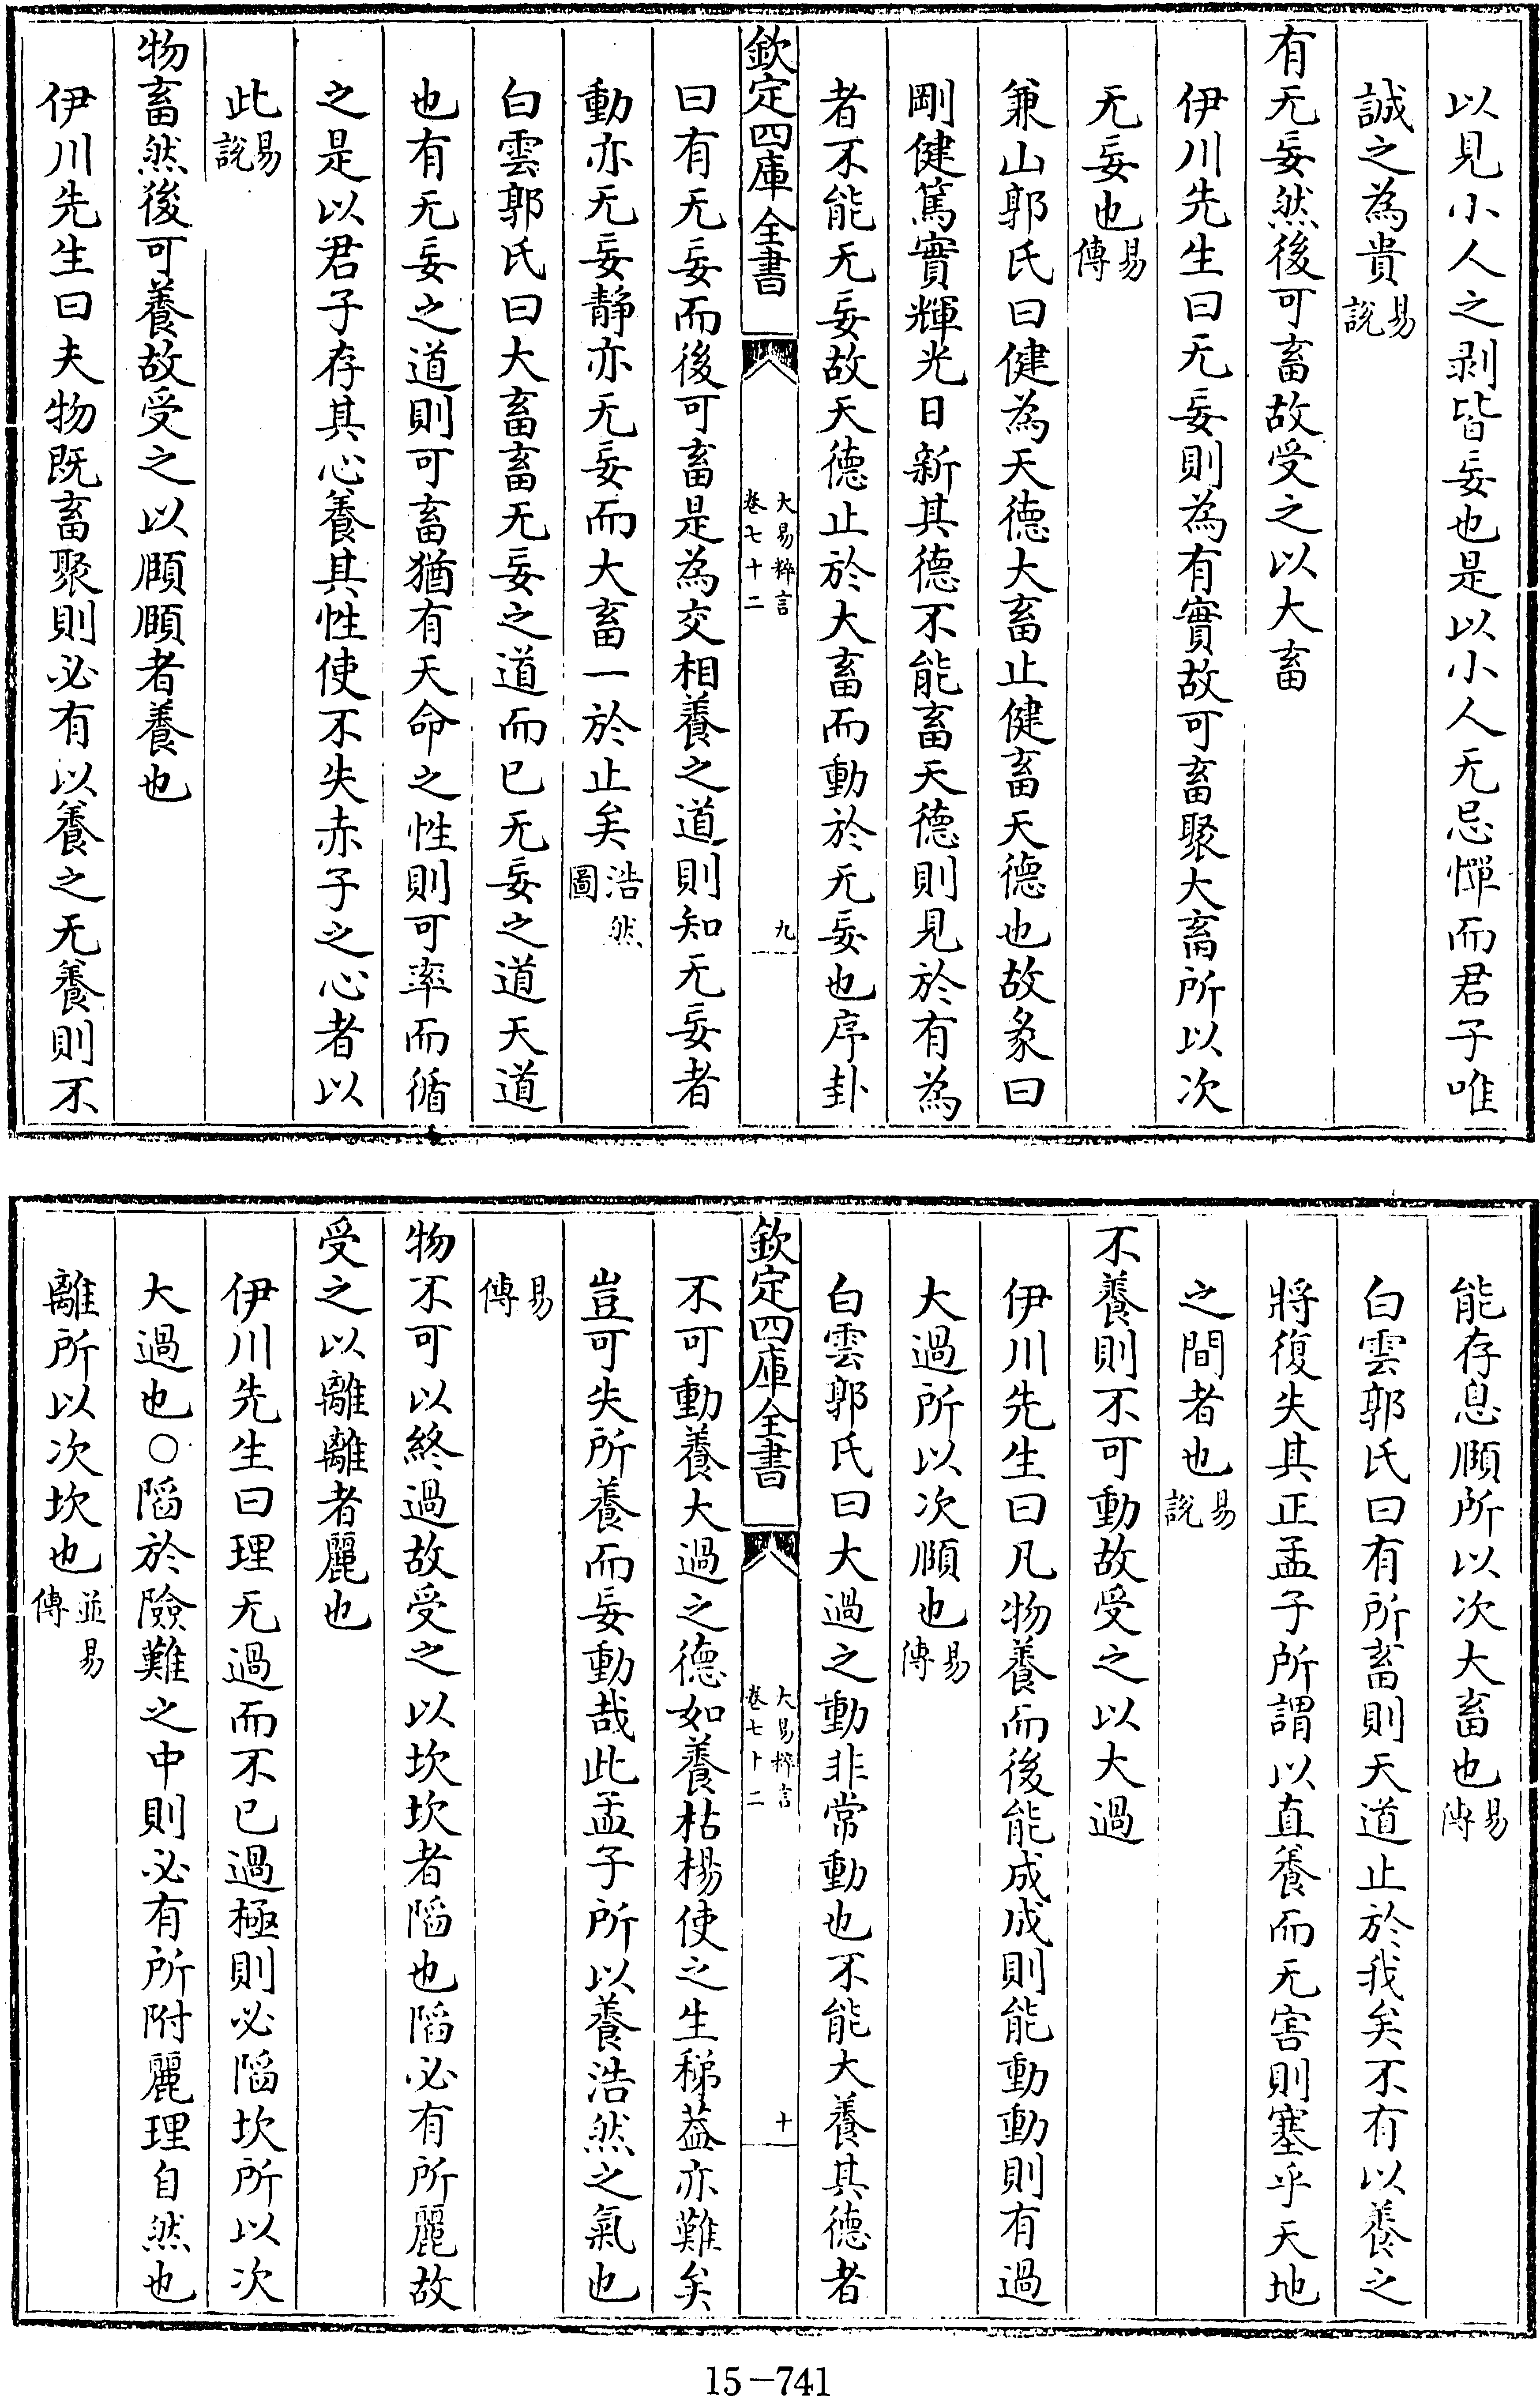 以見小人之剥皆妄也是以小人无忌憚而君子唯
誠之為貴易說
有无妄然後可畜故受之以大畜
伊川先生曰无妄則為有實故可畜聚大畜所以次
无妄也易傳
兼山郭氏曰健為天德大畜止健畜天德也故彖曰
剛健篤實輝光日新其德不能畜天德則見於有為
者不能无妄故天德止於大畜而動於无妄也序卦
欽定四庫全書
大易粹言
卷七十二
九
曰有无妄而後可畜是為交相養之道則知无妄者
動亦无妄靜亦无妄而大畜一於止矣浩然圖
白雲郭氏曰大畜畜无妄之道而已无妄之道天道
也有无妄之道則可畜猶有天命之性則可率而循
之是以君子存其心養其性使不失赤子之心者以
此易說
物畜然後可養故受之以頤頤者養也
伊川先生曰夫物既畜聚則必有以養之无養則不
能存息頤所以次大畜也易傳
白雲郭氏曰有所畜則天道止於我矣不有以養之
將復失其正孟子所謂以直養而无害則塞乎天地
之間者也易說
不養則不可動故受之以大過
伊川先生曰凡物養而後能成成則能動動則有過
大過所以次頤也易傳
白雲郭氏曰大過之動非常動也不能大養其德者
欽定四庫全書
大易粹言
卷七十二
十
不可動養大過之德如養枯楊使之生稊葢亦難矣
豈可失所養而妄動哉此孟子所以養浩然之氣也
易傳
物不可以終過故受之以坎坎者陷也陷必有所麗故
受之以離離者麗也
伊川先生曰理无過而不已過極則必陷坎所以次
大過也○陷於險難之中則必有所附麗理自然也
離所以次坎也並易傳
15-741